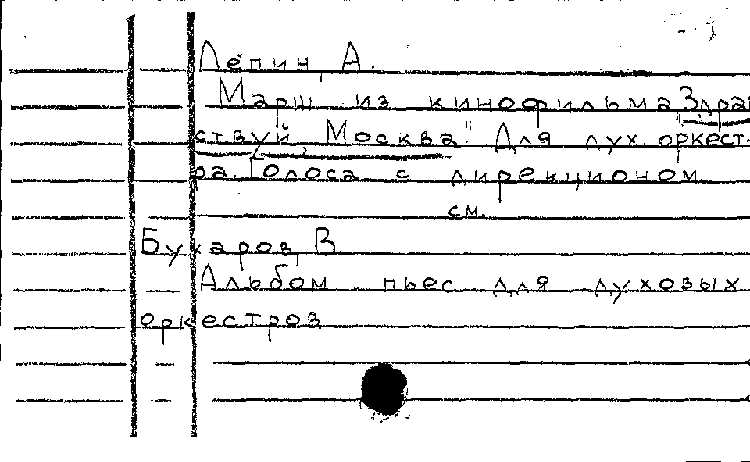 Лепин, А.
Марш из кинофильма "Здрав
ствуй, Москва" Для дух. оркест-
ра. Голоса с дирекционом
см.
Бухаров, В
Альбом пьес для духовых
оркестров